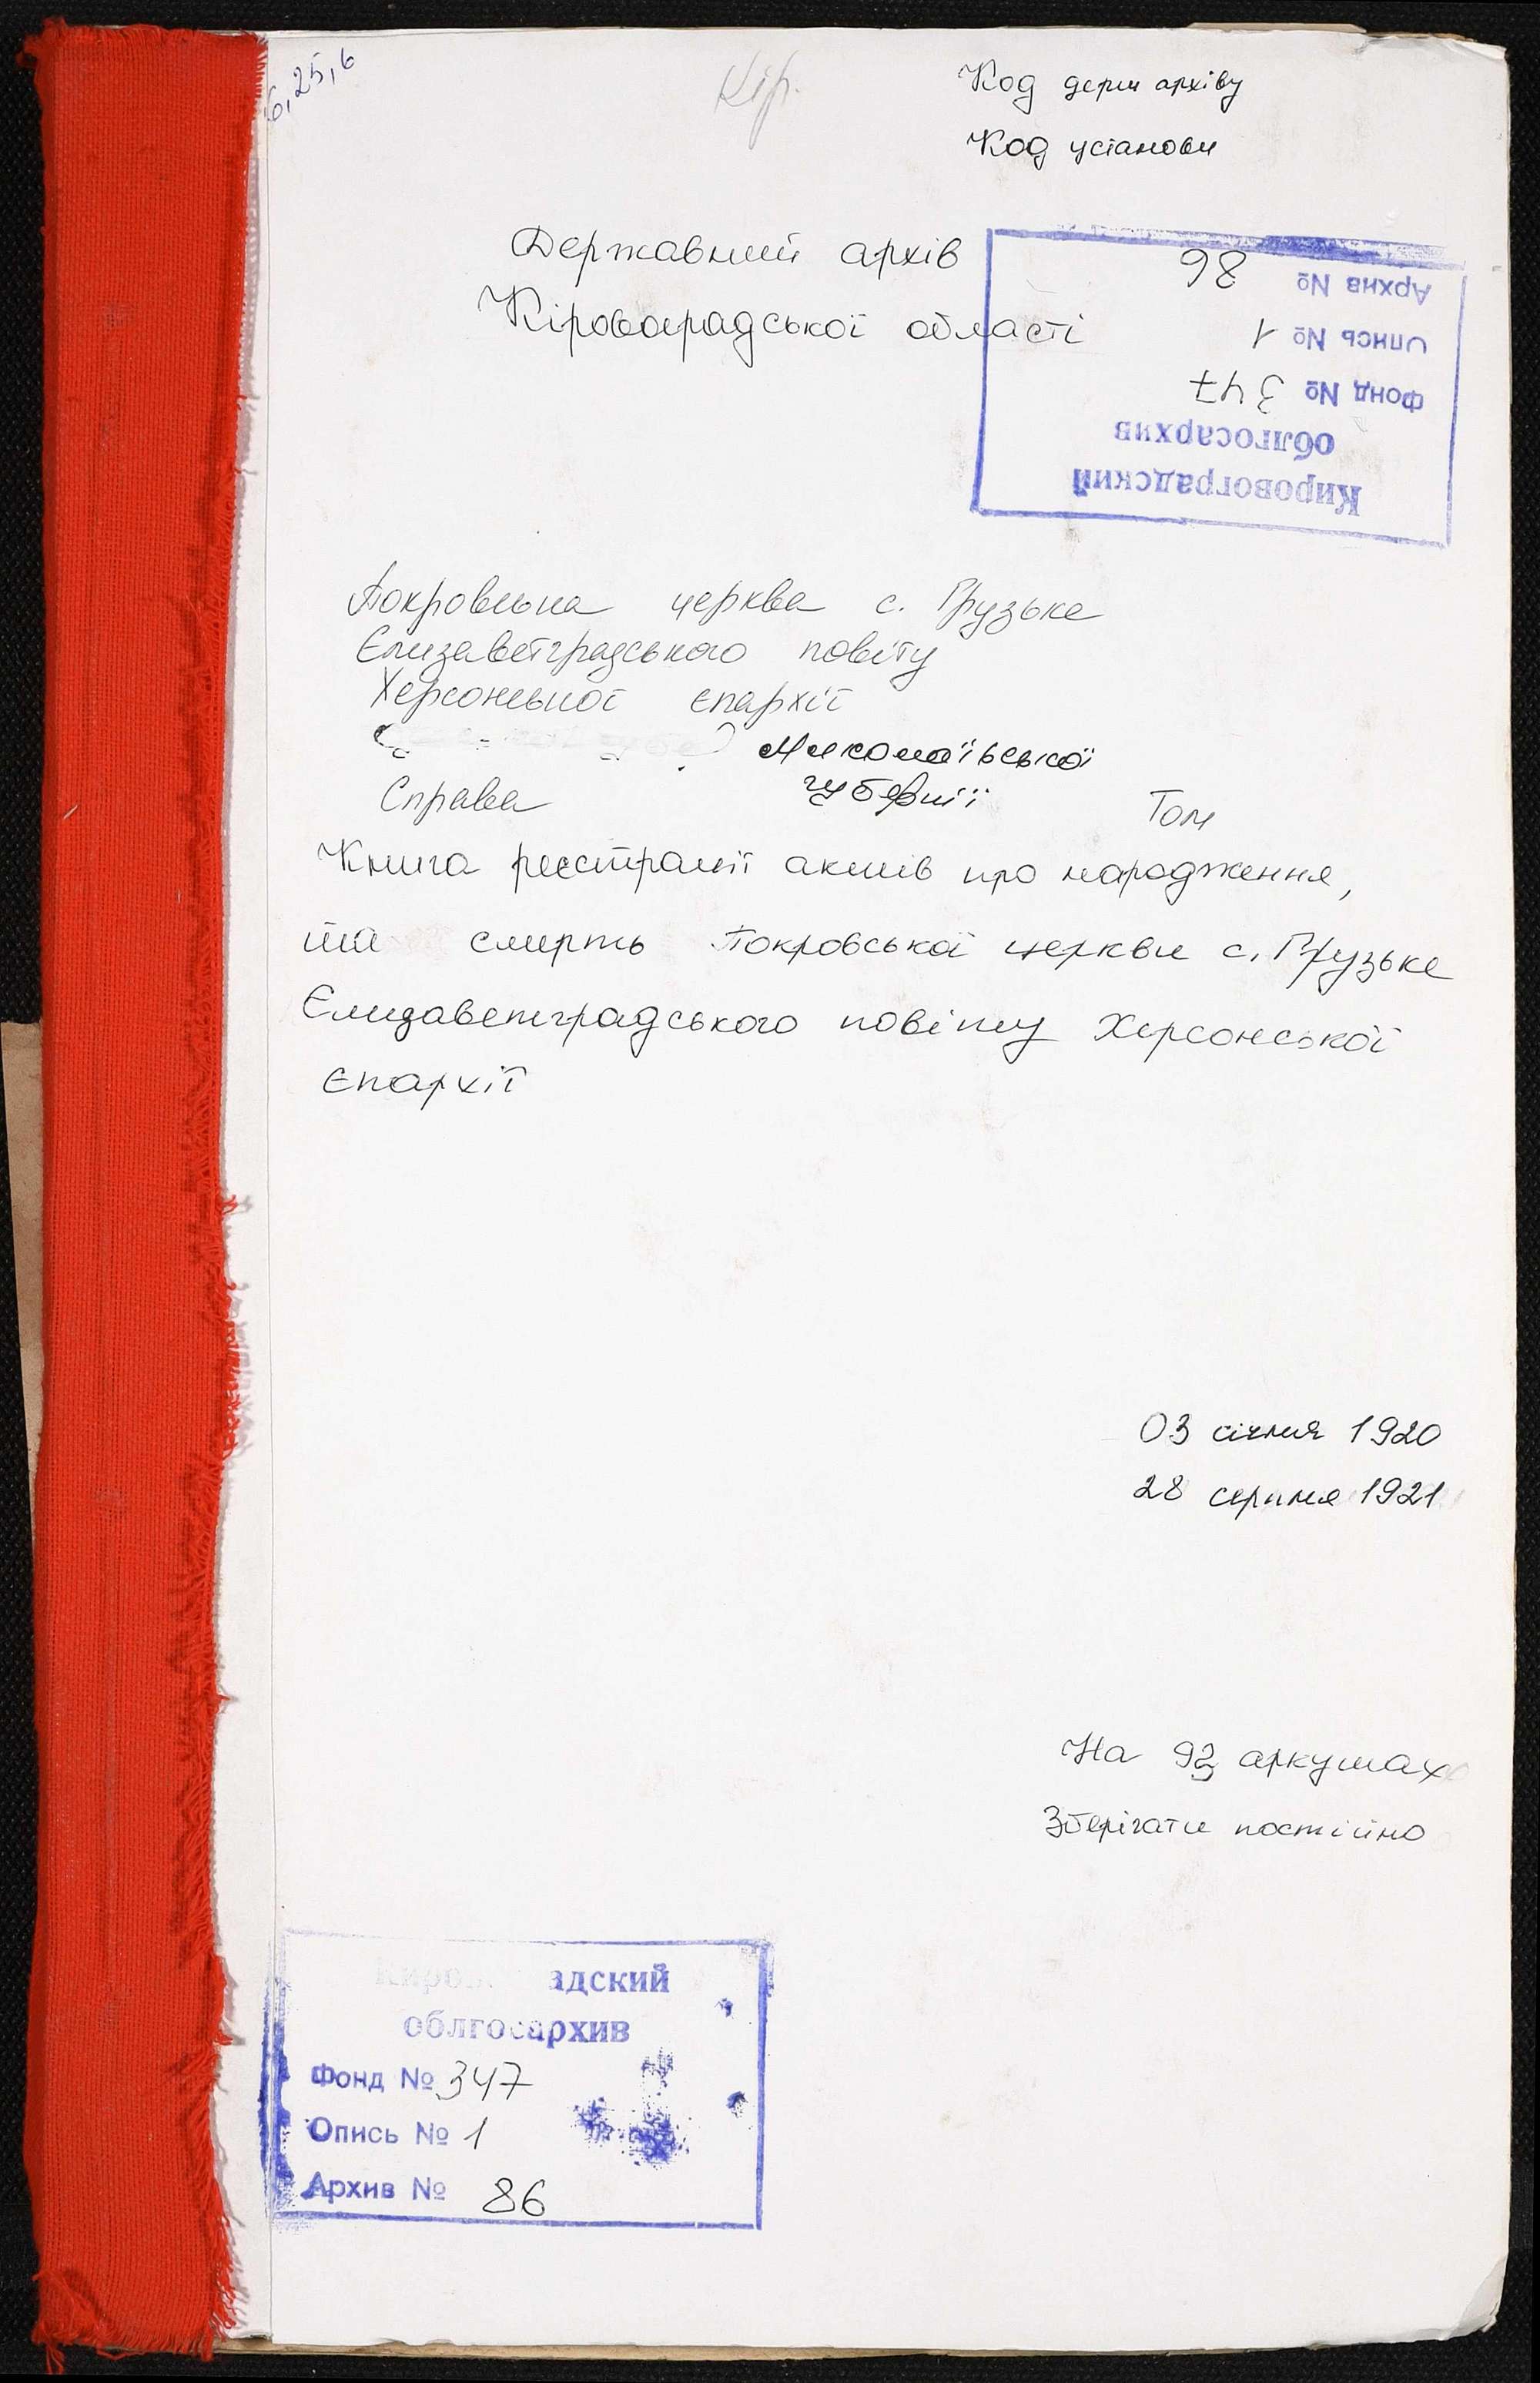 6,25,6
Кір.
Код держ архіву
Код установи
Державний архів
Кіровоградської області
Кировоградский
облгосархив
Фонд № 347
Опись № 1
Архив № 86
Покровська церква с. Грузьке
Єлизаветградського повіту
Херсонської єпархії
Миколаївської
губернії
Справа
Том
Книга реєстрації актів про народження,
та смерть Покровської церкви с. Грузьке
Єлизаветградського повіту Херсонської
єпархії
03 січня 1920
28 серпня 1921
На 93 аркушах
Зберігати постійно
Кировоградский
облгосархив
Фонд № 347
Опись № 1
Архив № 86